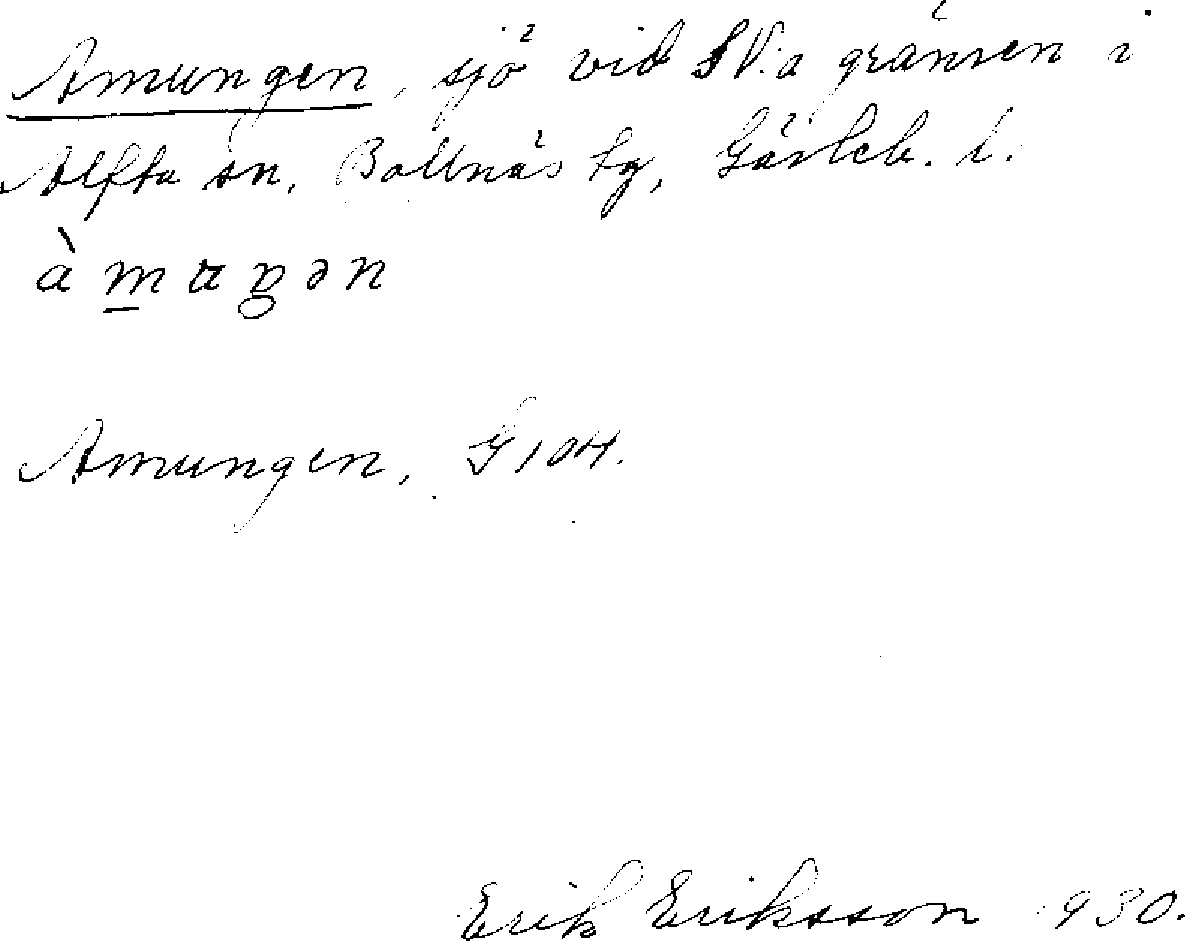 Amungen, sjö vid SV:a gränsen i
Alfta sn, Bollnäs tg, Gävleb. l.
Amungen, G 104.
Erik Eriksson 1930.